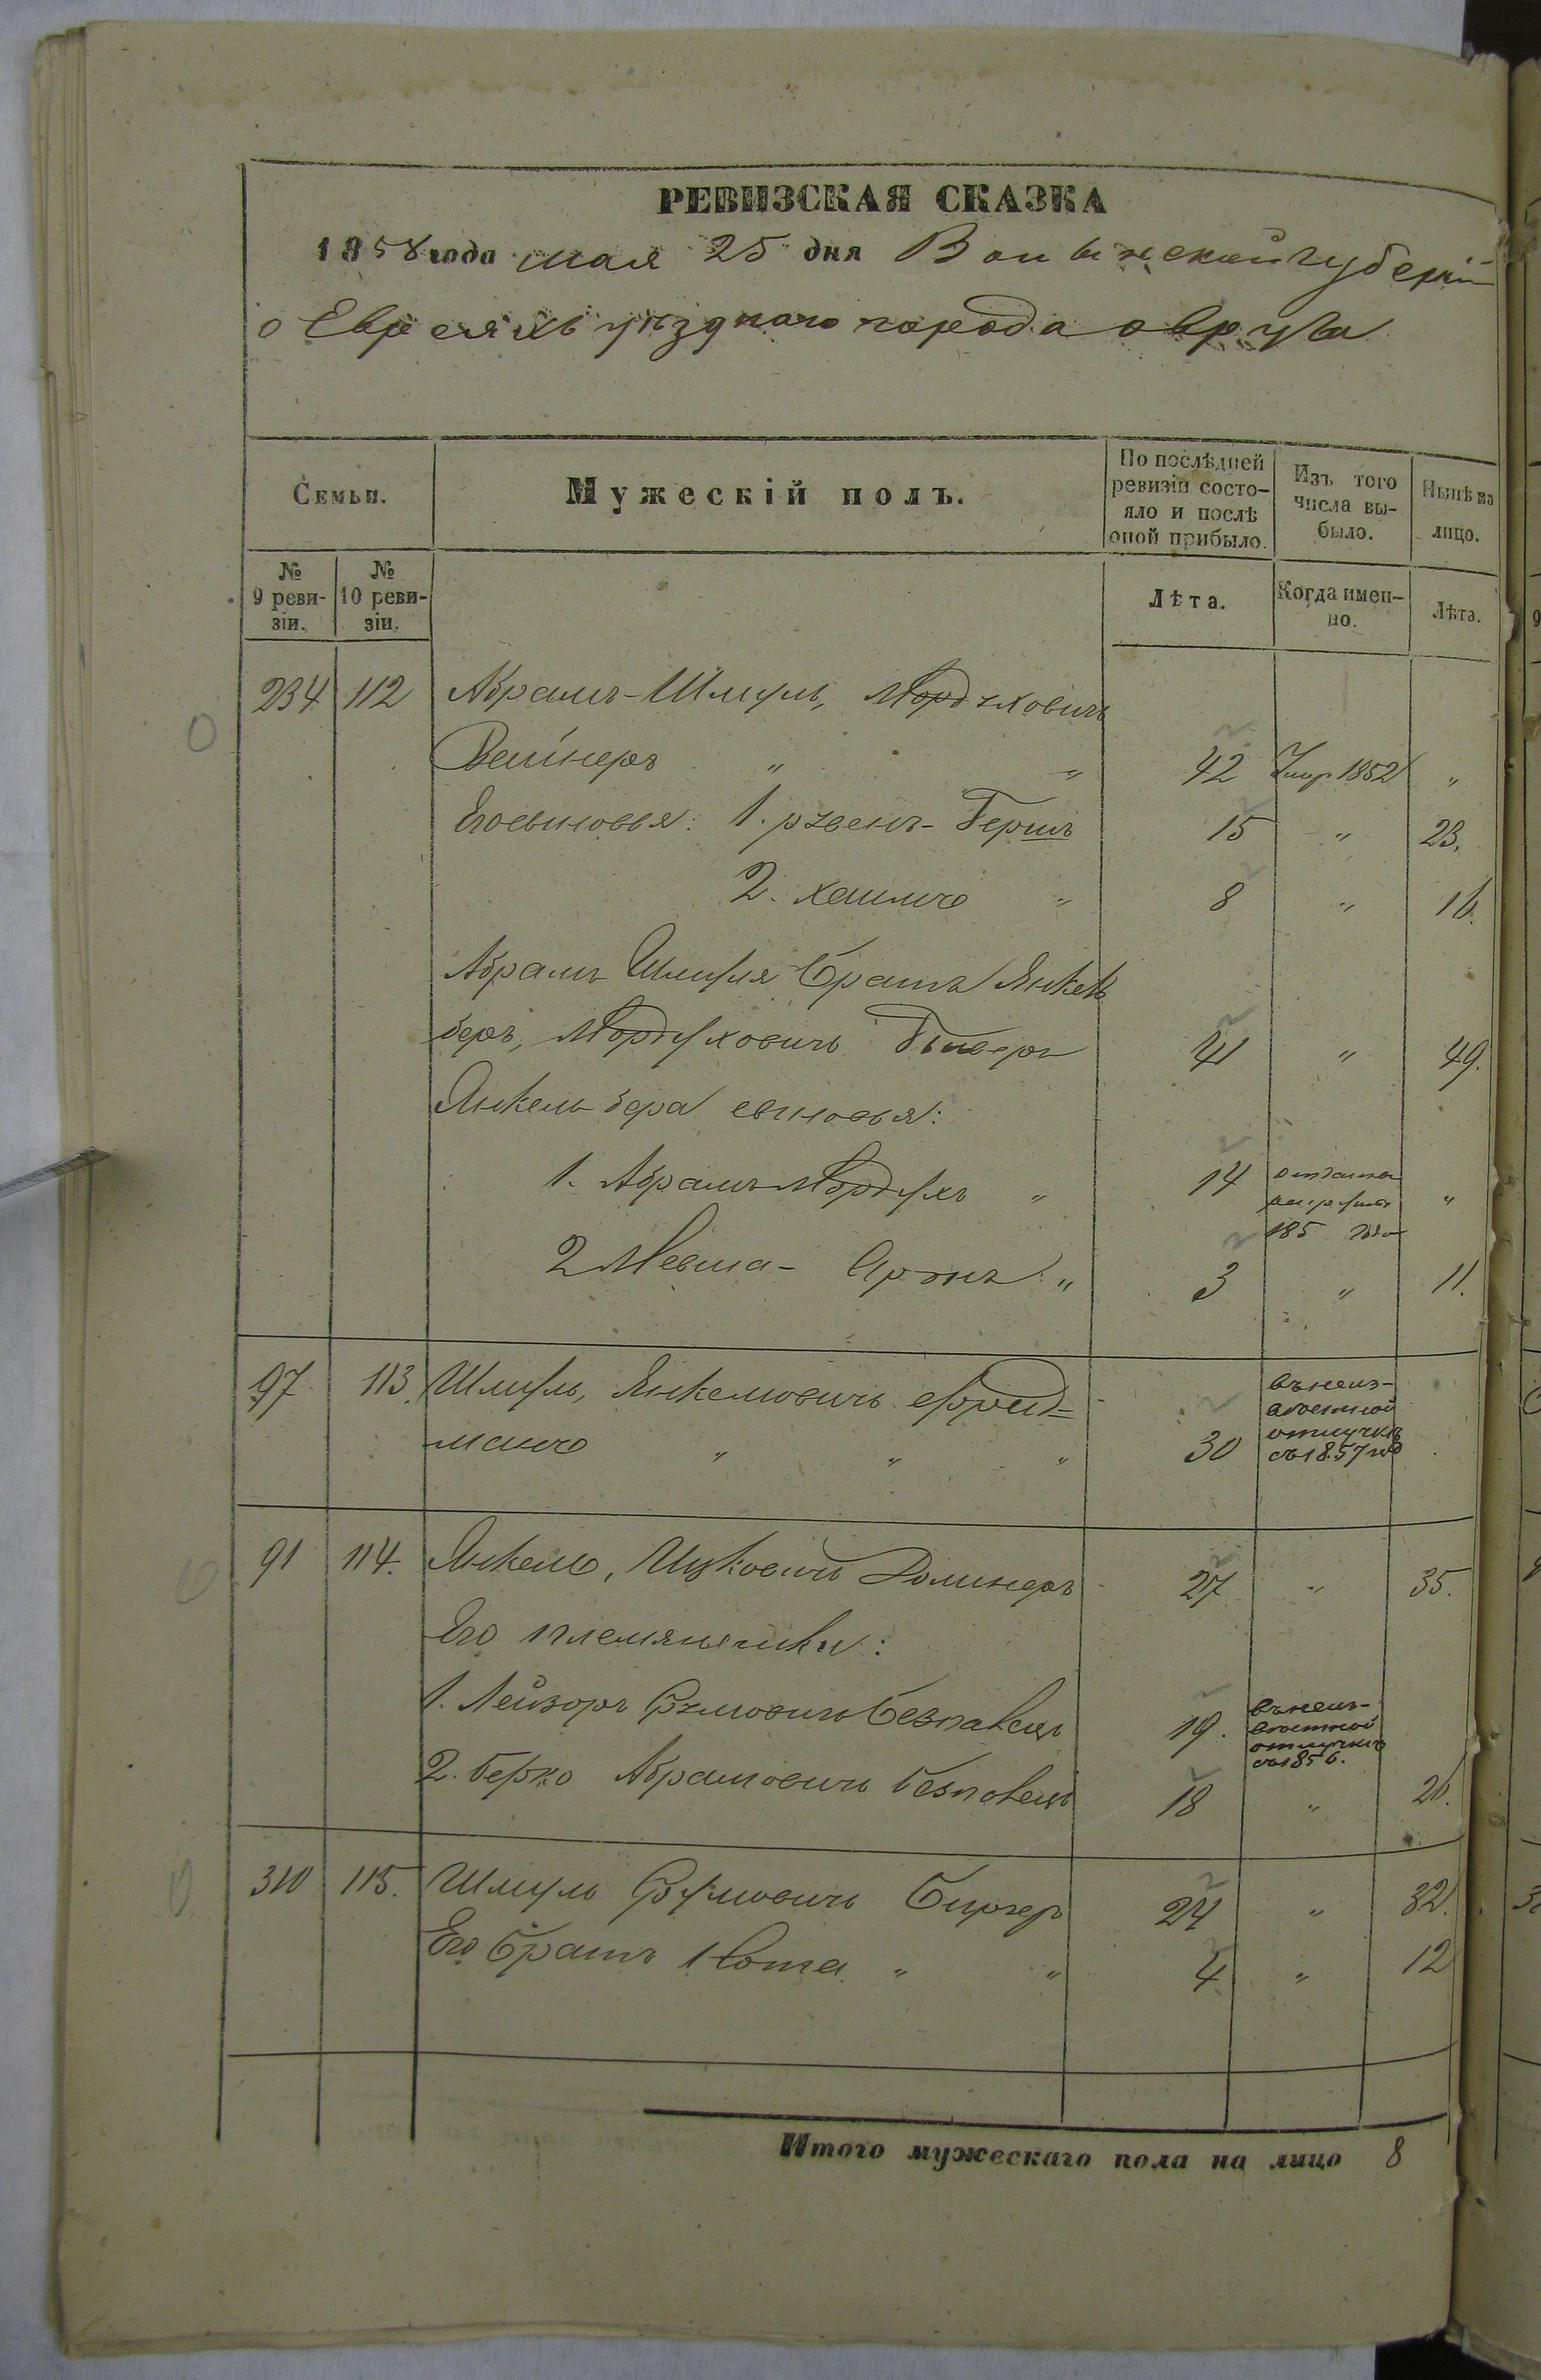 РЕВИЗСКАЯ СКАЗКА
1858 года мая 25 дня Волынской губерніи
о Евреяхъ уѣзднаго города овруча
Семьи.
Мужескій полъ.
По послѣдней ревизіи состо-
яло и послѣ
оной прибыло.
Изъ того
числа вы-
было.
Нынѣ на
лицо.
№ 9 реви-
зіи.
№ 10 реви-
зіи.
Лѣта.
Когда имен-
но.
Лѣта.
234 112 Абрамъ-Шмуль, Мордуховичъ
Вайнеръ " " 42 Умер 1852 "
Его сыновья: 1. рувенъ-Гершъ 15 " 23.
2. хаимъ " 8 " 16.
Абрамъ Шмуля братъ Янкель
беръ, Мордуховичъ 41 " 49.
Янкель бера сыновья:
1. Абрамъ Мордухъ " 14 185 "
2 Мевша- Аронъ " 3 " 11.
97 113. Шмуль, Янкелювичъ Фрид=
манъ " " " 30 въ неиз-
вѣстной
отлучкѣ
съ 1857 го
91 114. Янкель, Ицковичъ Долинеръ 27 " 35.
Его племянники:
1. Лейзоръ Срулювичъ 19. въ неиз-
вѣстной
отлучкѣ
съ 1856.
2. берко Абрамовичъ 18 " 26.
310 115. Шмуль Срулювичъ Биргеръ 24 " 32.
Его братъ Нота " " 4 " 12
Итого мужескаго пола на лицо 8